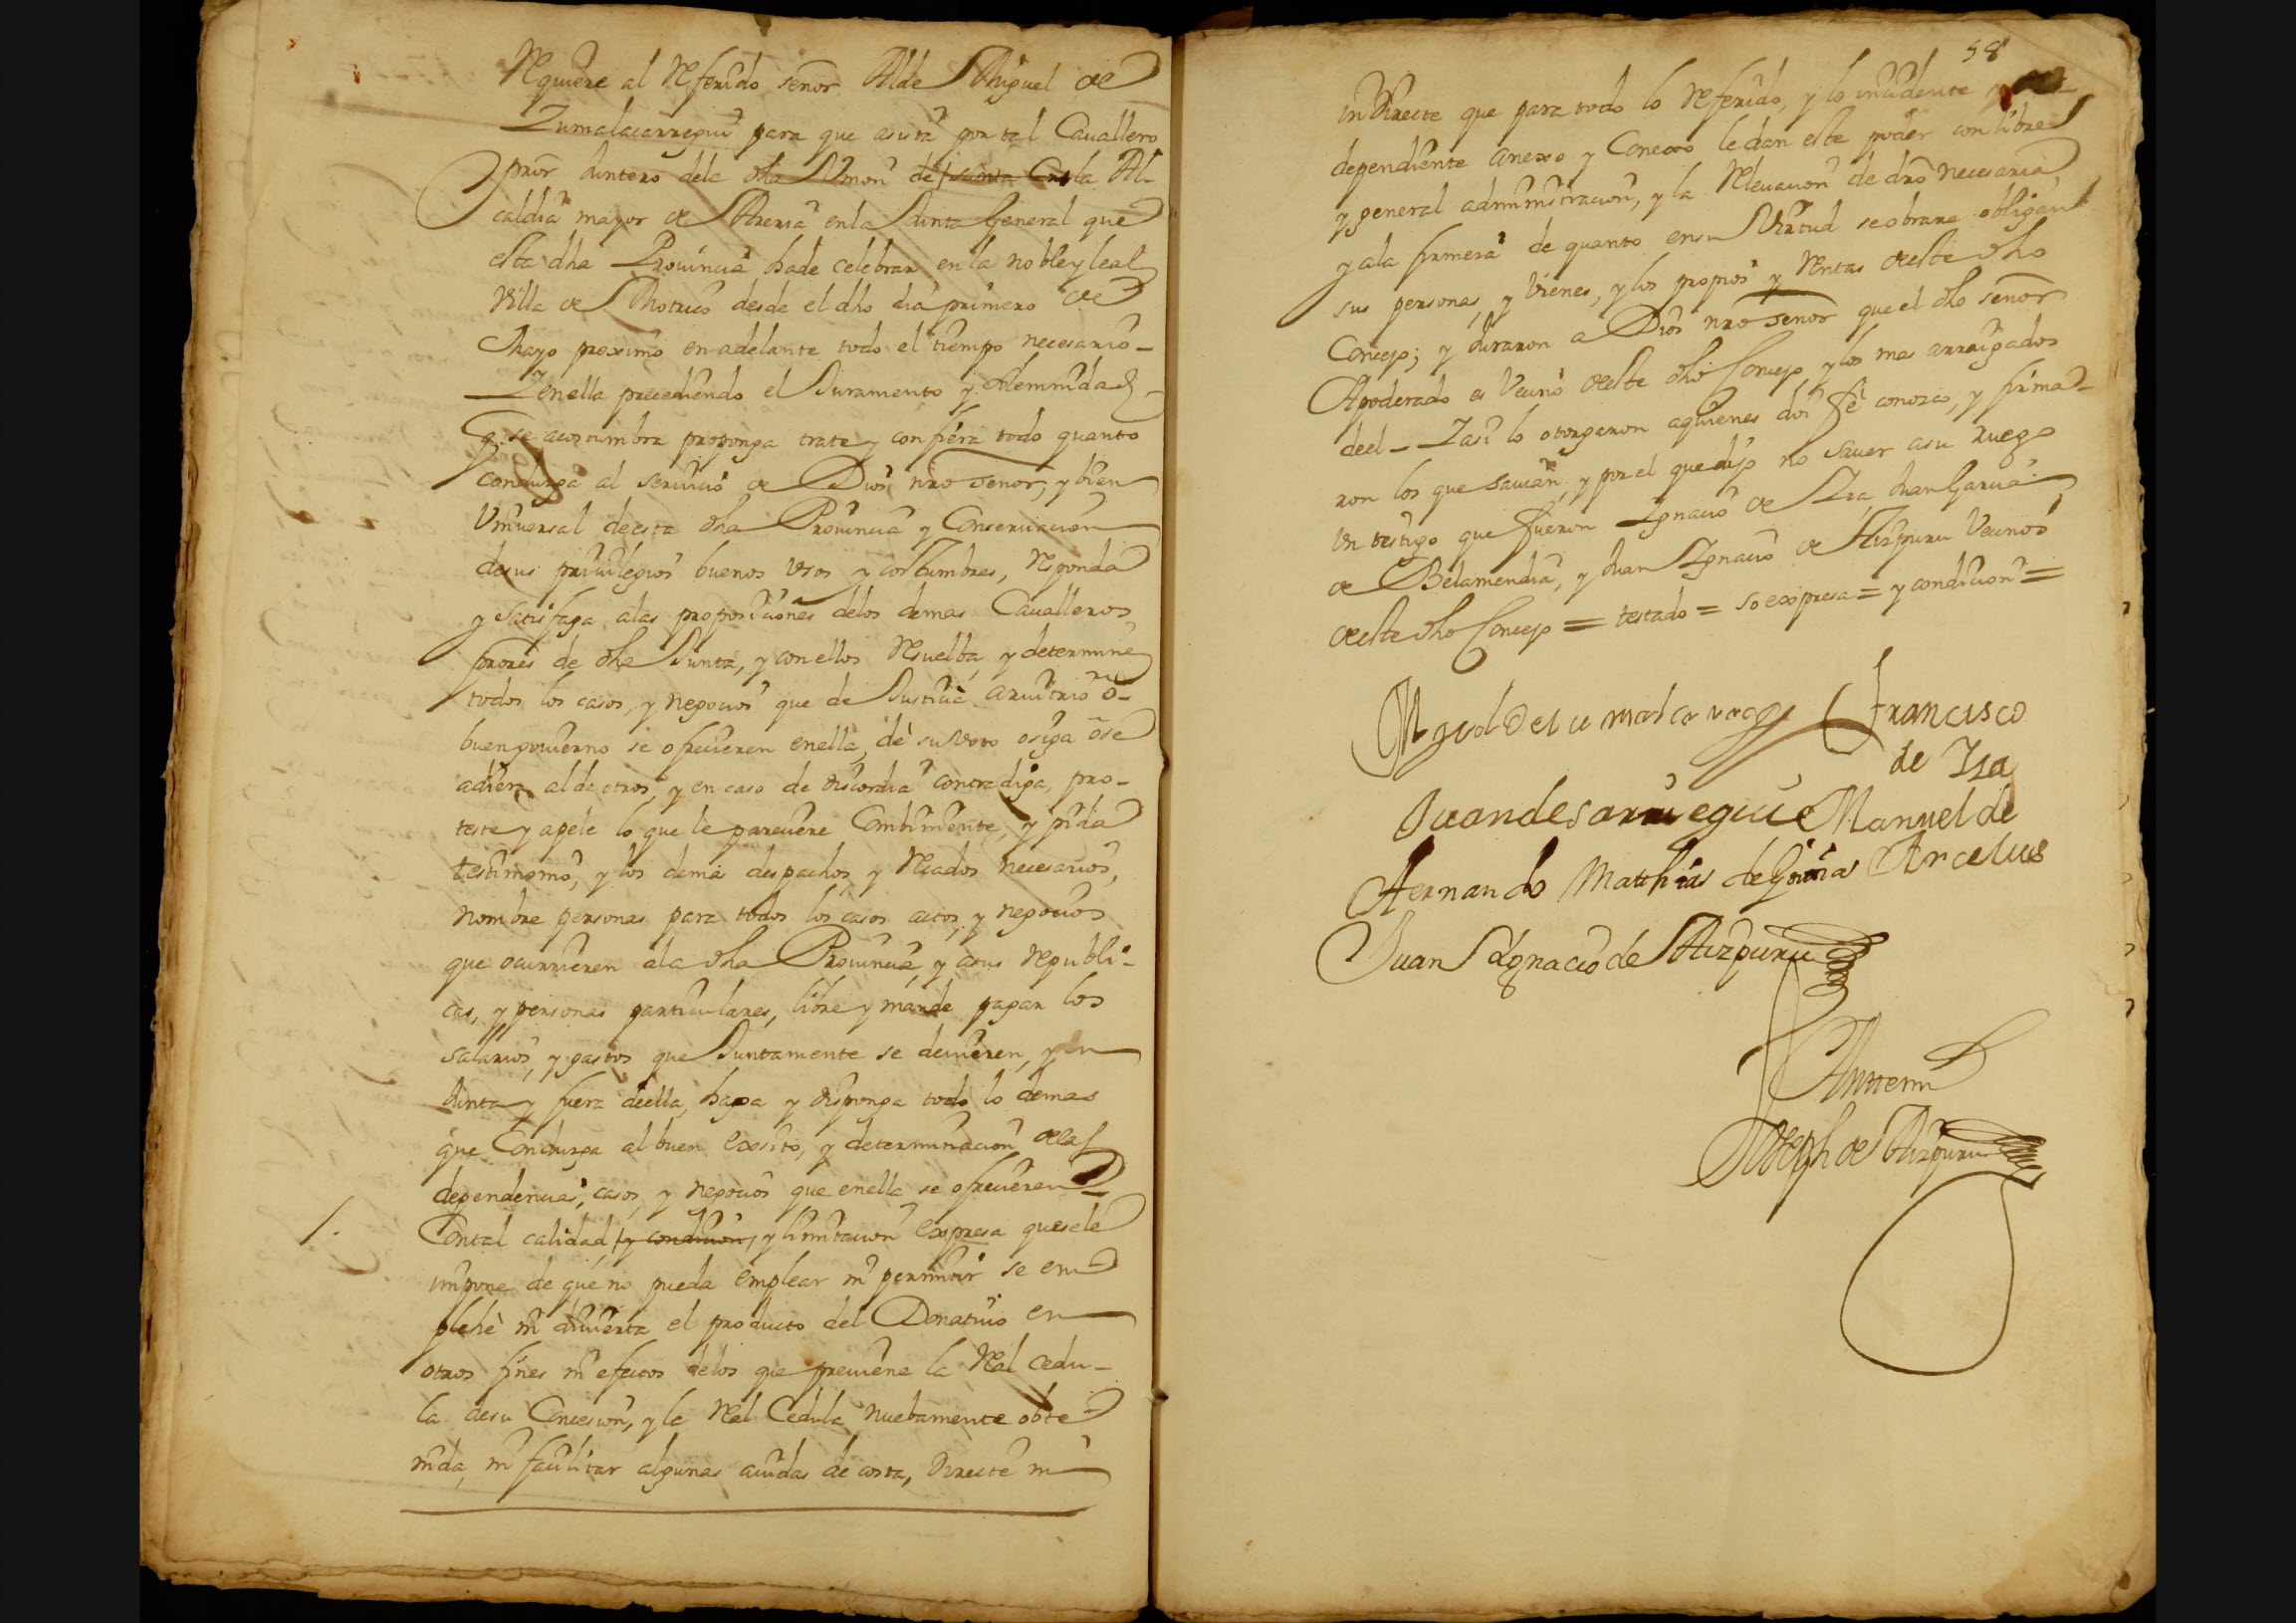 Requiere al Referido señor Alde Miguel de
Zumalacarregui para que asista por tal Cauallero
pror Juntero dela dha Vnion de santa Cruz la Al-
caldia mayor de Areria en la Junta General que
esta dha Prouincia hade celebrar en la noble y leal
Villa de Motrico desde el dho dia primero de
Mayo proximo en adelante todo el tiempo necesario -
Y en ella precediendo el Juramento y solemnidad -
q. se acostumbra proponga trate y confiera todo quanto
Conduzga al seruicio de Dios nro señor, y bien
Vniuersal de esta dha Prouincia y Conseruacion
desus priuilegios buenos vsos y costumbres, Responda
y Satisfaga alas proposiciones delos demas Caualleros
prores de dha Junta, y con ellos Resuelba, y determine
todos los casos, y negocios que de Justicia aruitrio ô-
buen gouierno se ofrecieren en ella, dè su Voto o siga ôse
adiera al de otros, y en caso de discordia contradiga, pro-
teste y apele lo que le pareciere Combiniente, y pida
testimonio, y los demas despachos, y Recados necesarios,
nombre personas para todos los casos actos, y negocios
que ocurrieren ala dha Prouincia, y asus Republi-
cas, y personas particulares, libre y mande pagar los
salarios, y gastos que Juntamente se deuieren, y en
Junta y fuera de ella, haga y disponga todo lo demas
que Conduzga al buen Exsito, y determinacion delas
dependencias, casos, y negocios que en ella se ofrecieren
/. Contal calidad y condicion, y limitacion Expresa que se le
impone de que no pueda emplear ni permitir se em
plehè ni diuierta el producto del Donatiuo en
otros fines ni efectos delos que preuiene la Real Cedu-
la desu Concesion, y la Real Cedula nuebamente obte
nida, ni facilitar algunas aiudas de costa, directè ni
58
indirecte que para todo lo Referido, y lo incidente y
dependiente anexo y Conexo le dan este poder con libre
y general administracion, y la Releuacion de dro necesaria
y ala firmeza de quanto en su Virtud se obrare obligan
sus personas, y bienes, y los propios y Rentas deeste dho
Concejo; y Juraron a Dios nro señor que el dho señor
Apoderado es Vecino deeste dho Concejo, y los mas arraigados
deel - Y asi lo otorgaron aquienes doi fê conozco, y firma-
ron los que sauian, y por el que dijo no sauer asu ruego
Vn testigo que fueron Ignacio de Iza, Juan Garcia
de Belamendia, y Juan Ignacio de Aizpuru Vecinos
deeste dho Concejo = testado = so expresa = y condicion =
Migel de cu malcarregi Francisco
de Iza
Juan de Sarriegui Manuel de
Arcelus
Hernando Matthias de Goiria
Juan Ignacio de Aizpuru
Anttemi
Joseph de Aizpuru